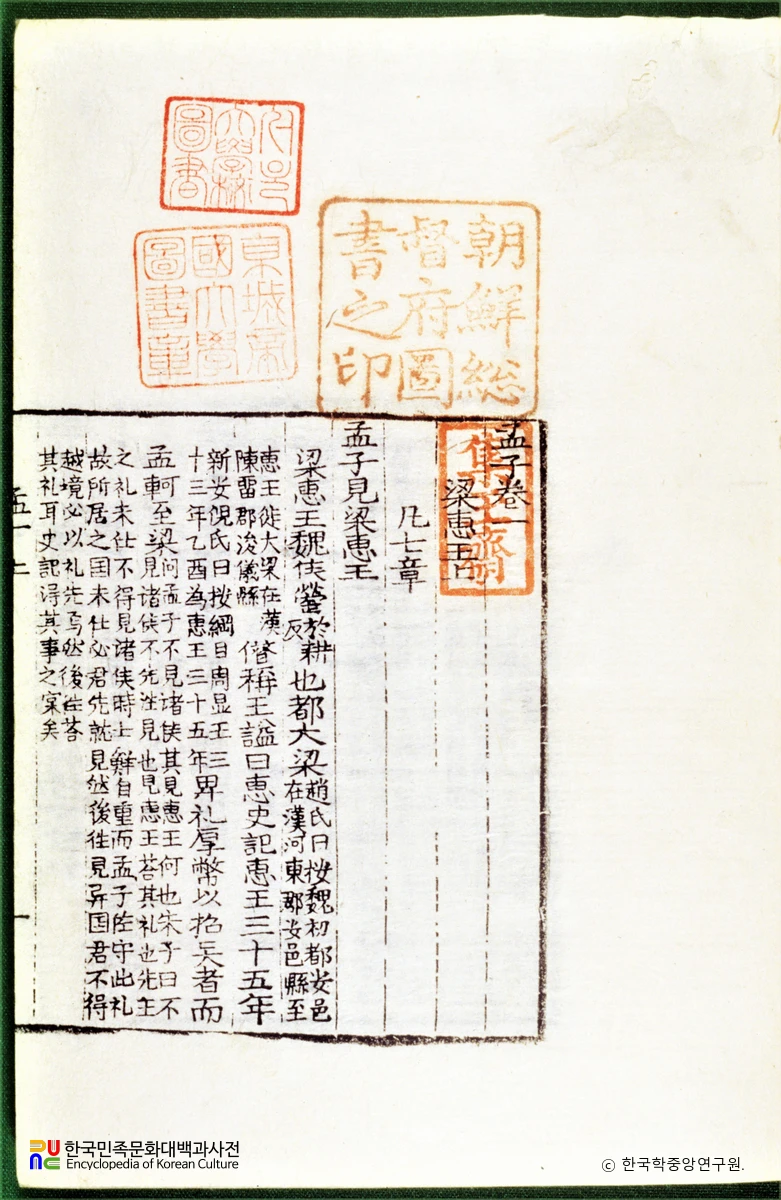 大學校
圖書
京城帝
國大學
圖書章
朝鮮総
督府圖
書之印
集玉齋
孟子卷一
梁惠王上
凡七章
孟子見梁惠王
梁惠王魏侯罃於耕反也都大梁趙氏曰按魏初都安邑在漢河東郡安邑縣至
惠王徙大梁在漢陳留郡浚儀縣僭稱王謚曰惠史記惠王三十五年
新安倪氏曰按綱目周显王三十三年乙酉為惠王三十五年卑礼厚幣以招贤者而
孟軻至梁问孟子不見诸侯其見惠王何也朱子曰不見诸侯不先往見也見惠王荅其礼也先王
之礼未仕不得見诸侯時士鮮自重而孟子犹守此礼
故所居之国未仕必君先就見然後往見异国君不得
越境必以礼先焉然後往荅
其礼耳史記得其事之寔矣
孟一上
一
한국민족문화대백과사전
Encyclopedia of Korean Culture
ⓒ 한국학중앙연구원.